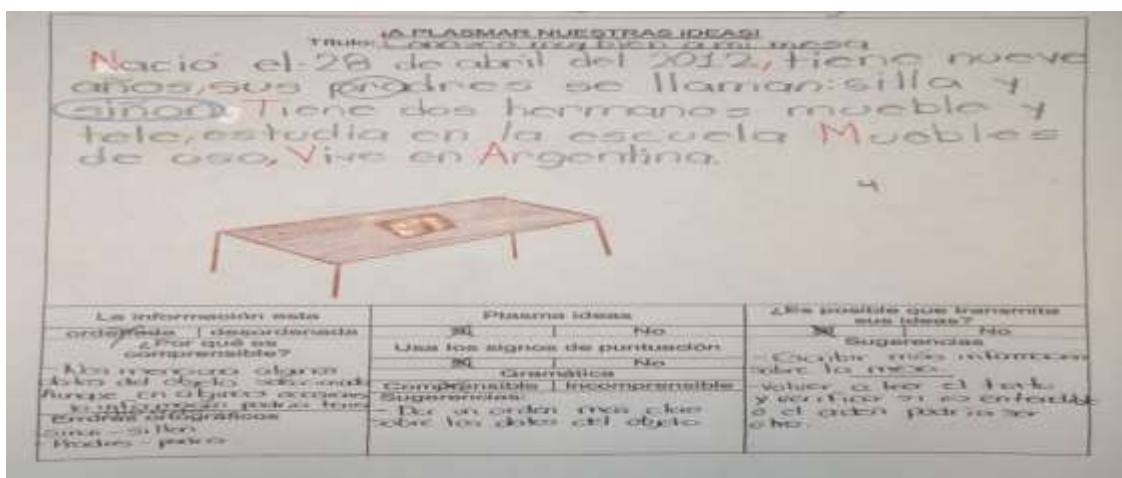 ¡A PLASMAR NUESTRAS IDEAS!
Título: Conozco muy bien a mi mesa
Nació el 28 de abril del 2012, tiene nueve
años, sus prodres se llaman: silla y
siñon. Tiene dos hermanos mueble y
tele, estudia en la escuela Muebles
de uso, Vive en Argentina.
4
La información esta
ordenada | desordenada
¿Por qué es
comprensible?
- Nos menciona algunos
datos del objeto seleccionado
Aunque en algunas ocasiones
la información podría
Errores ortográficos
- sillon
- padres
Plasma ideas
Si | No
Usa los signos de puntuación
Si | No
Gramática
Comprensible | Incomprensible
Sugerencias:
- Dar un orden mas claro
sobre los datos del objeto
¿Es posible que transmita
sus ideas?
Si | No
Sugerencias
- Escribir más información
sobre la mesa
- Volver a leer el texto
y verificar si es entendible
o el orden podría ser
otro.